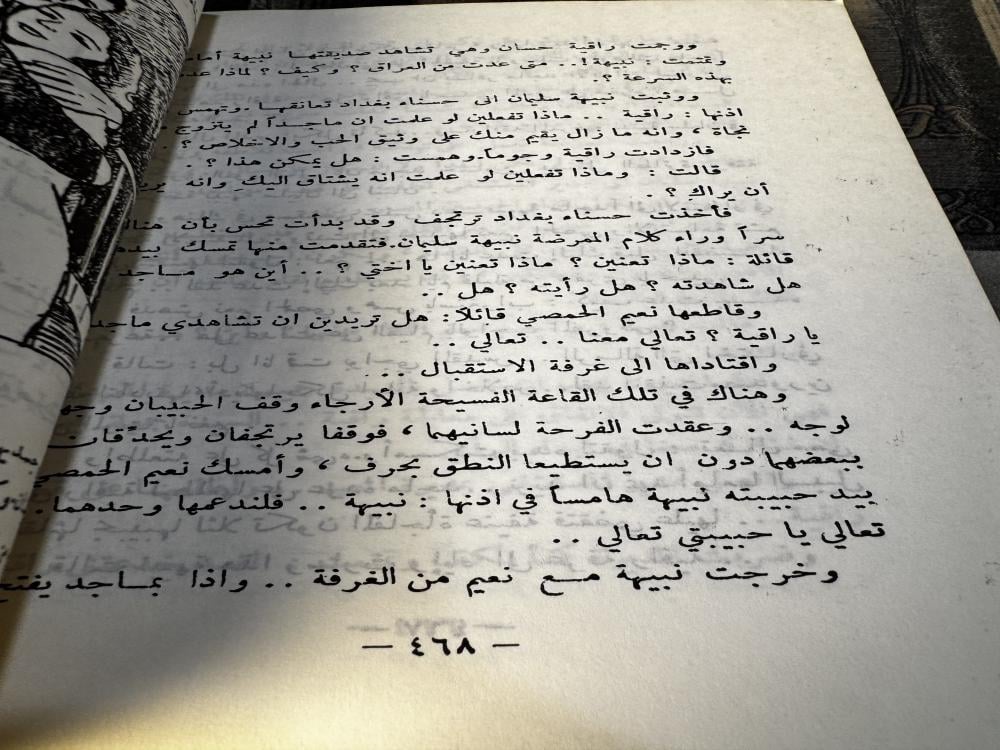 ووجمت راقية حسان وهي تشاهد صديقتها نبيهة
وتمتمت : نبيهة! .. متى عدت من العراق ؟ وكيف ؟ لماذا
بهذه السرعة ؟.
ووثبت نبيهة سليمان الى حسناء بغداد تعانقها .وتهمس
اذنها : راقية .. ماذا تفعلين لو علمت ان ماجداً لم يتزوج
نجاة ، وانه ما زال يقيم منك على وثيق الحب والاخلاص ؟ .
فازدادت راقية وجوماً.وهمست : هل يمكن هذا ؟ .
قالت : وماذا تفعلين لو علمت انه يشتاق اليك وانه
أن يراك ؟ .
فأخذت حسناء بغداد ترتجف وقد بدأت تحس بأن
سراً وراء كلام الممرضة نبيهة سليمان.فتقدمت منها تمسك
قائلة : ماذا تعنين ؟ ماذا تعنين يا اختي ؟ .. أين هو مساجد
هل شاهدته ؟ هل رأيته ؟ هل ..
وقاطعها نعيم الحمصي قائلاً: هل تريدين ان تشاهدي ماجد
يا راقية ؟ تعالي معنا .. تعالي ..
واقتاداها الى غرفة الاستقبال ...
وهناك في تلك القاعة الفسيحة الأرجاء وقف الحبيبان
لوجه .. وعقدت الفرحة لسانيهما ، فوقفا يرتجفان ويحدّقان
ببعضهما دون ان يستطيعا النطق بحرف ، وأمسك نعيم الحمصي
بيد حبيبته نبيهة هامساً في اذنها : نبيهة .. فلندعمها وحدهما.
تعالي يا حبيبتي تعالي ..
وخرجت نبيهة مع نعيم من الغرفة .. واذا بماجد
— ٤٦٨ —